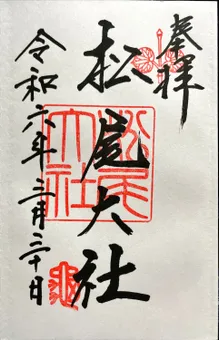 奉拝
松尾大社
松尾大社
令和六年三月三十日